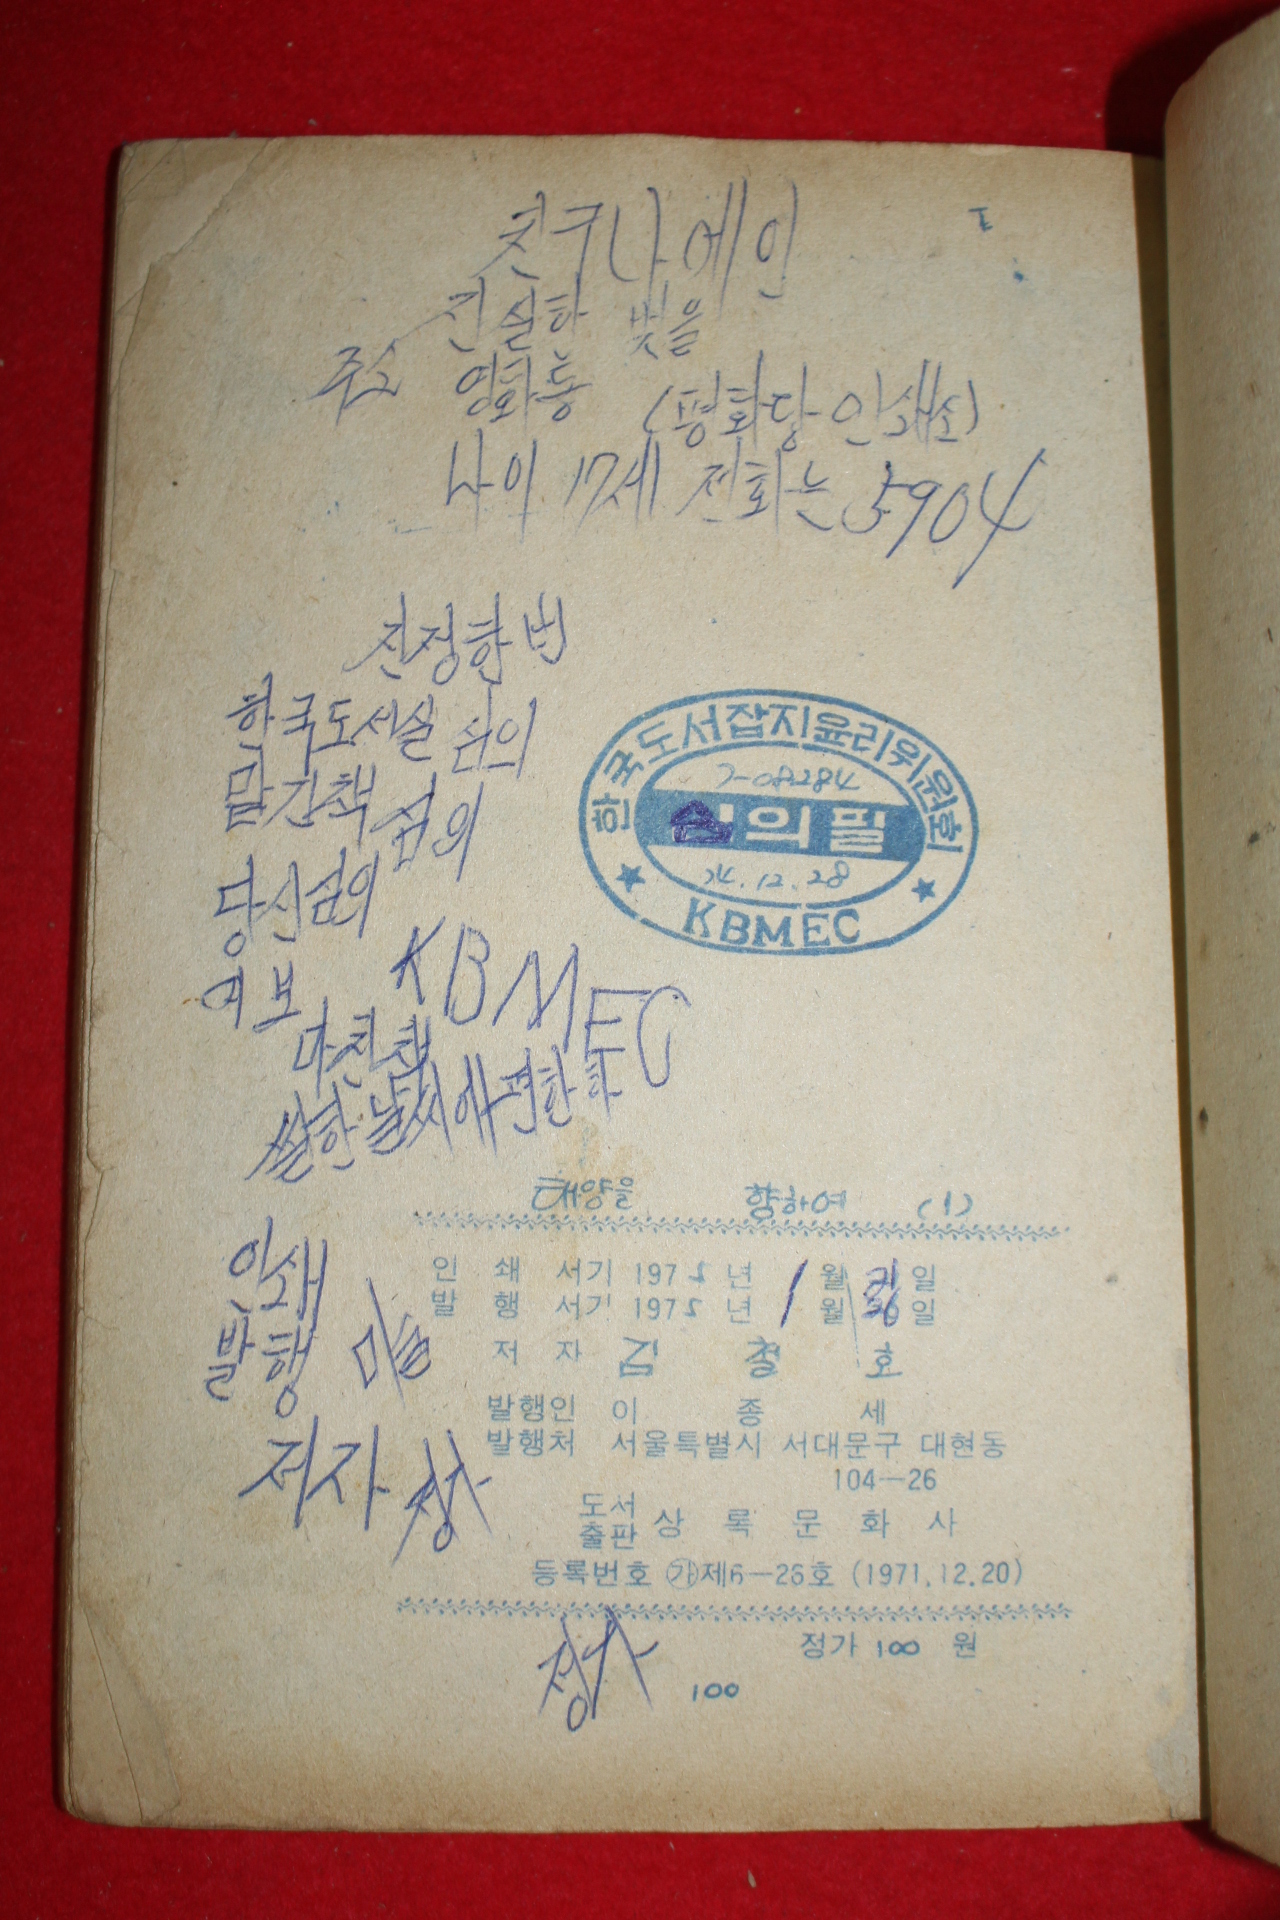 친구나 애인
진실한 벗을
주소 영화동 (평화당 인쇄소)
나이 17세 전화는 5904
진정한 번
한국도서실 심의
맡긴책 심의
당신 심의
여보
KBMEC
마친책
쌀한 날씨에 편한하
한국도서잡지윤리위원회
7-08284
심의필
74.12.28
★ KBMEC ★
태양을 향하여 (1)
인쇄 서기 1975년 1월 일
발행 서기 1975년 1월 일
저자 김철호
발행인 이종세
발행처 서울특별시 서대문구 대현동
104-26
도서출판 상록문화사
등록번호 ㉮제6-26호 (1971.12.20)
정가 100 원
100
인쇄
발행
저자
정가